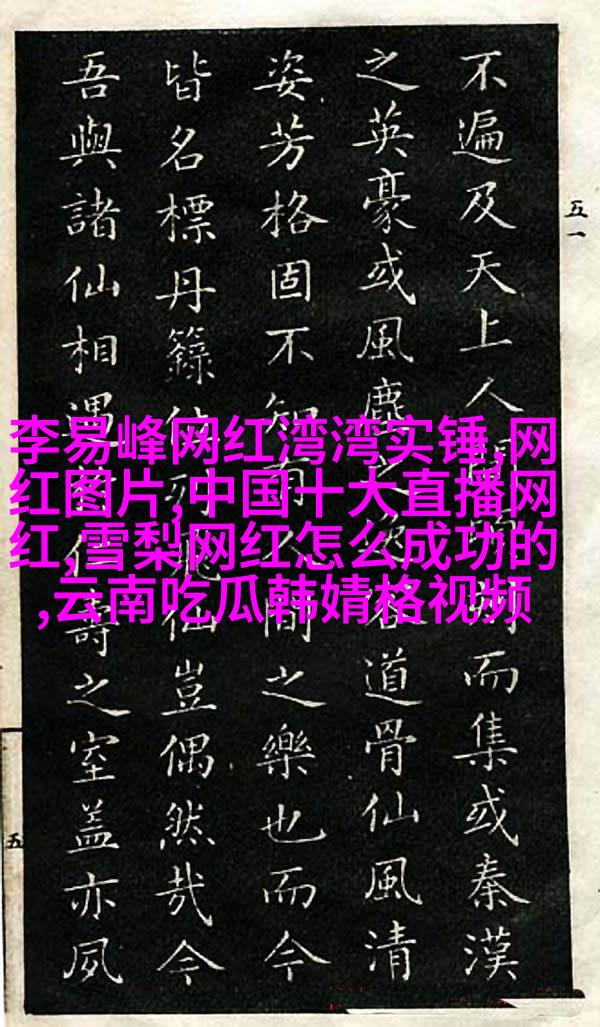 不遍及天上人而集或秦漢
之英豪或風塵之道骨仙風清
姿芳格固不知有人間之樂也而今
皆名標丹籙位列仙豈偶然哉今
吾與諸仙相遇壽之室蓋亦夙
五一
五
李易峰网红湾湾实锤,网
红图片,中国十大直播网
红,雪梨网红怎么成功的
,云南吃瓜韩婧格视频